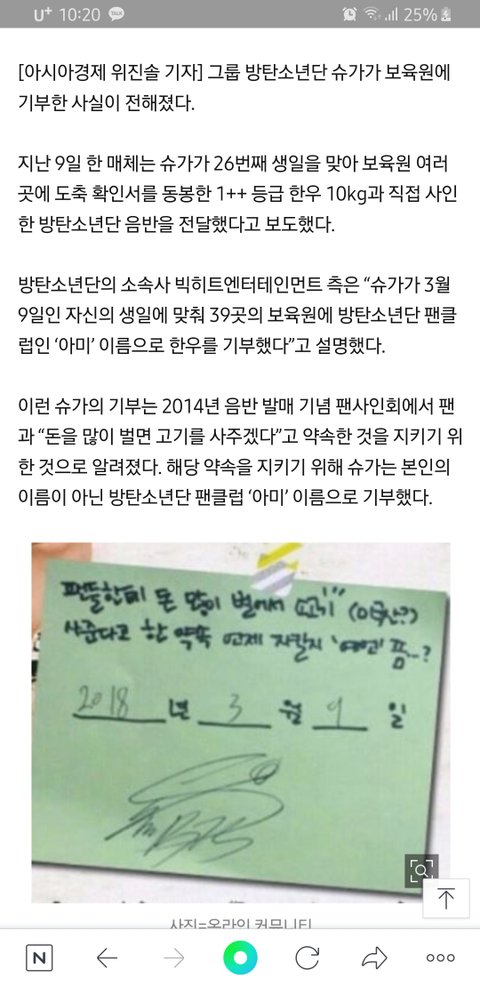 U+ 10:20 TALK 25%
[아시아경제 위진솔 기자] 그룹 방탄소년단 슈가가 보육원에
기부한 사실이 전해졌다.
지난 9일 한 매체는 슈가가 26번째 생일을 맞아 보육원 여러
곳에 도축 확인서를 동봉한 1++ 등급 한우 10kg과 직접 사인
한 방탄소년단 음반을 전달했다고 보도했다.
방탄소년단의 소속사 빅히트엔터테인먼트 측은 “슈가가 3월
9일인 자신의 생일에 맞춰 39곳의 보육원에 방탄소년단 팬클
럽인 ‘아미’ 이름으로 한우를 기부했다”고 설명했다.
이런 슈가의 기부는 2014년 음반 발매 기념 팬사인회에서 팬
과 “돈을 많이 벌면 고기를 사주겠다”고 약속한 것을 지키기 위
한 것으로 알려졌다. 해당 약속을 지키기 위해 슈가는 본인의
이름이 아닌 방탄소년단 팬클럽 ‘아미’ 이름으로 기부했다.
팬들한테 돈 많이 벌어서 고기
사준다고 한 약속 언제 지킬지
2018 년 3 월 9 일
사진=온라인 커뮤니티
N